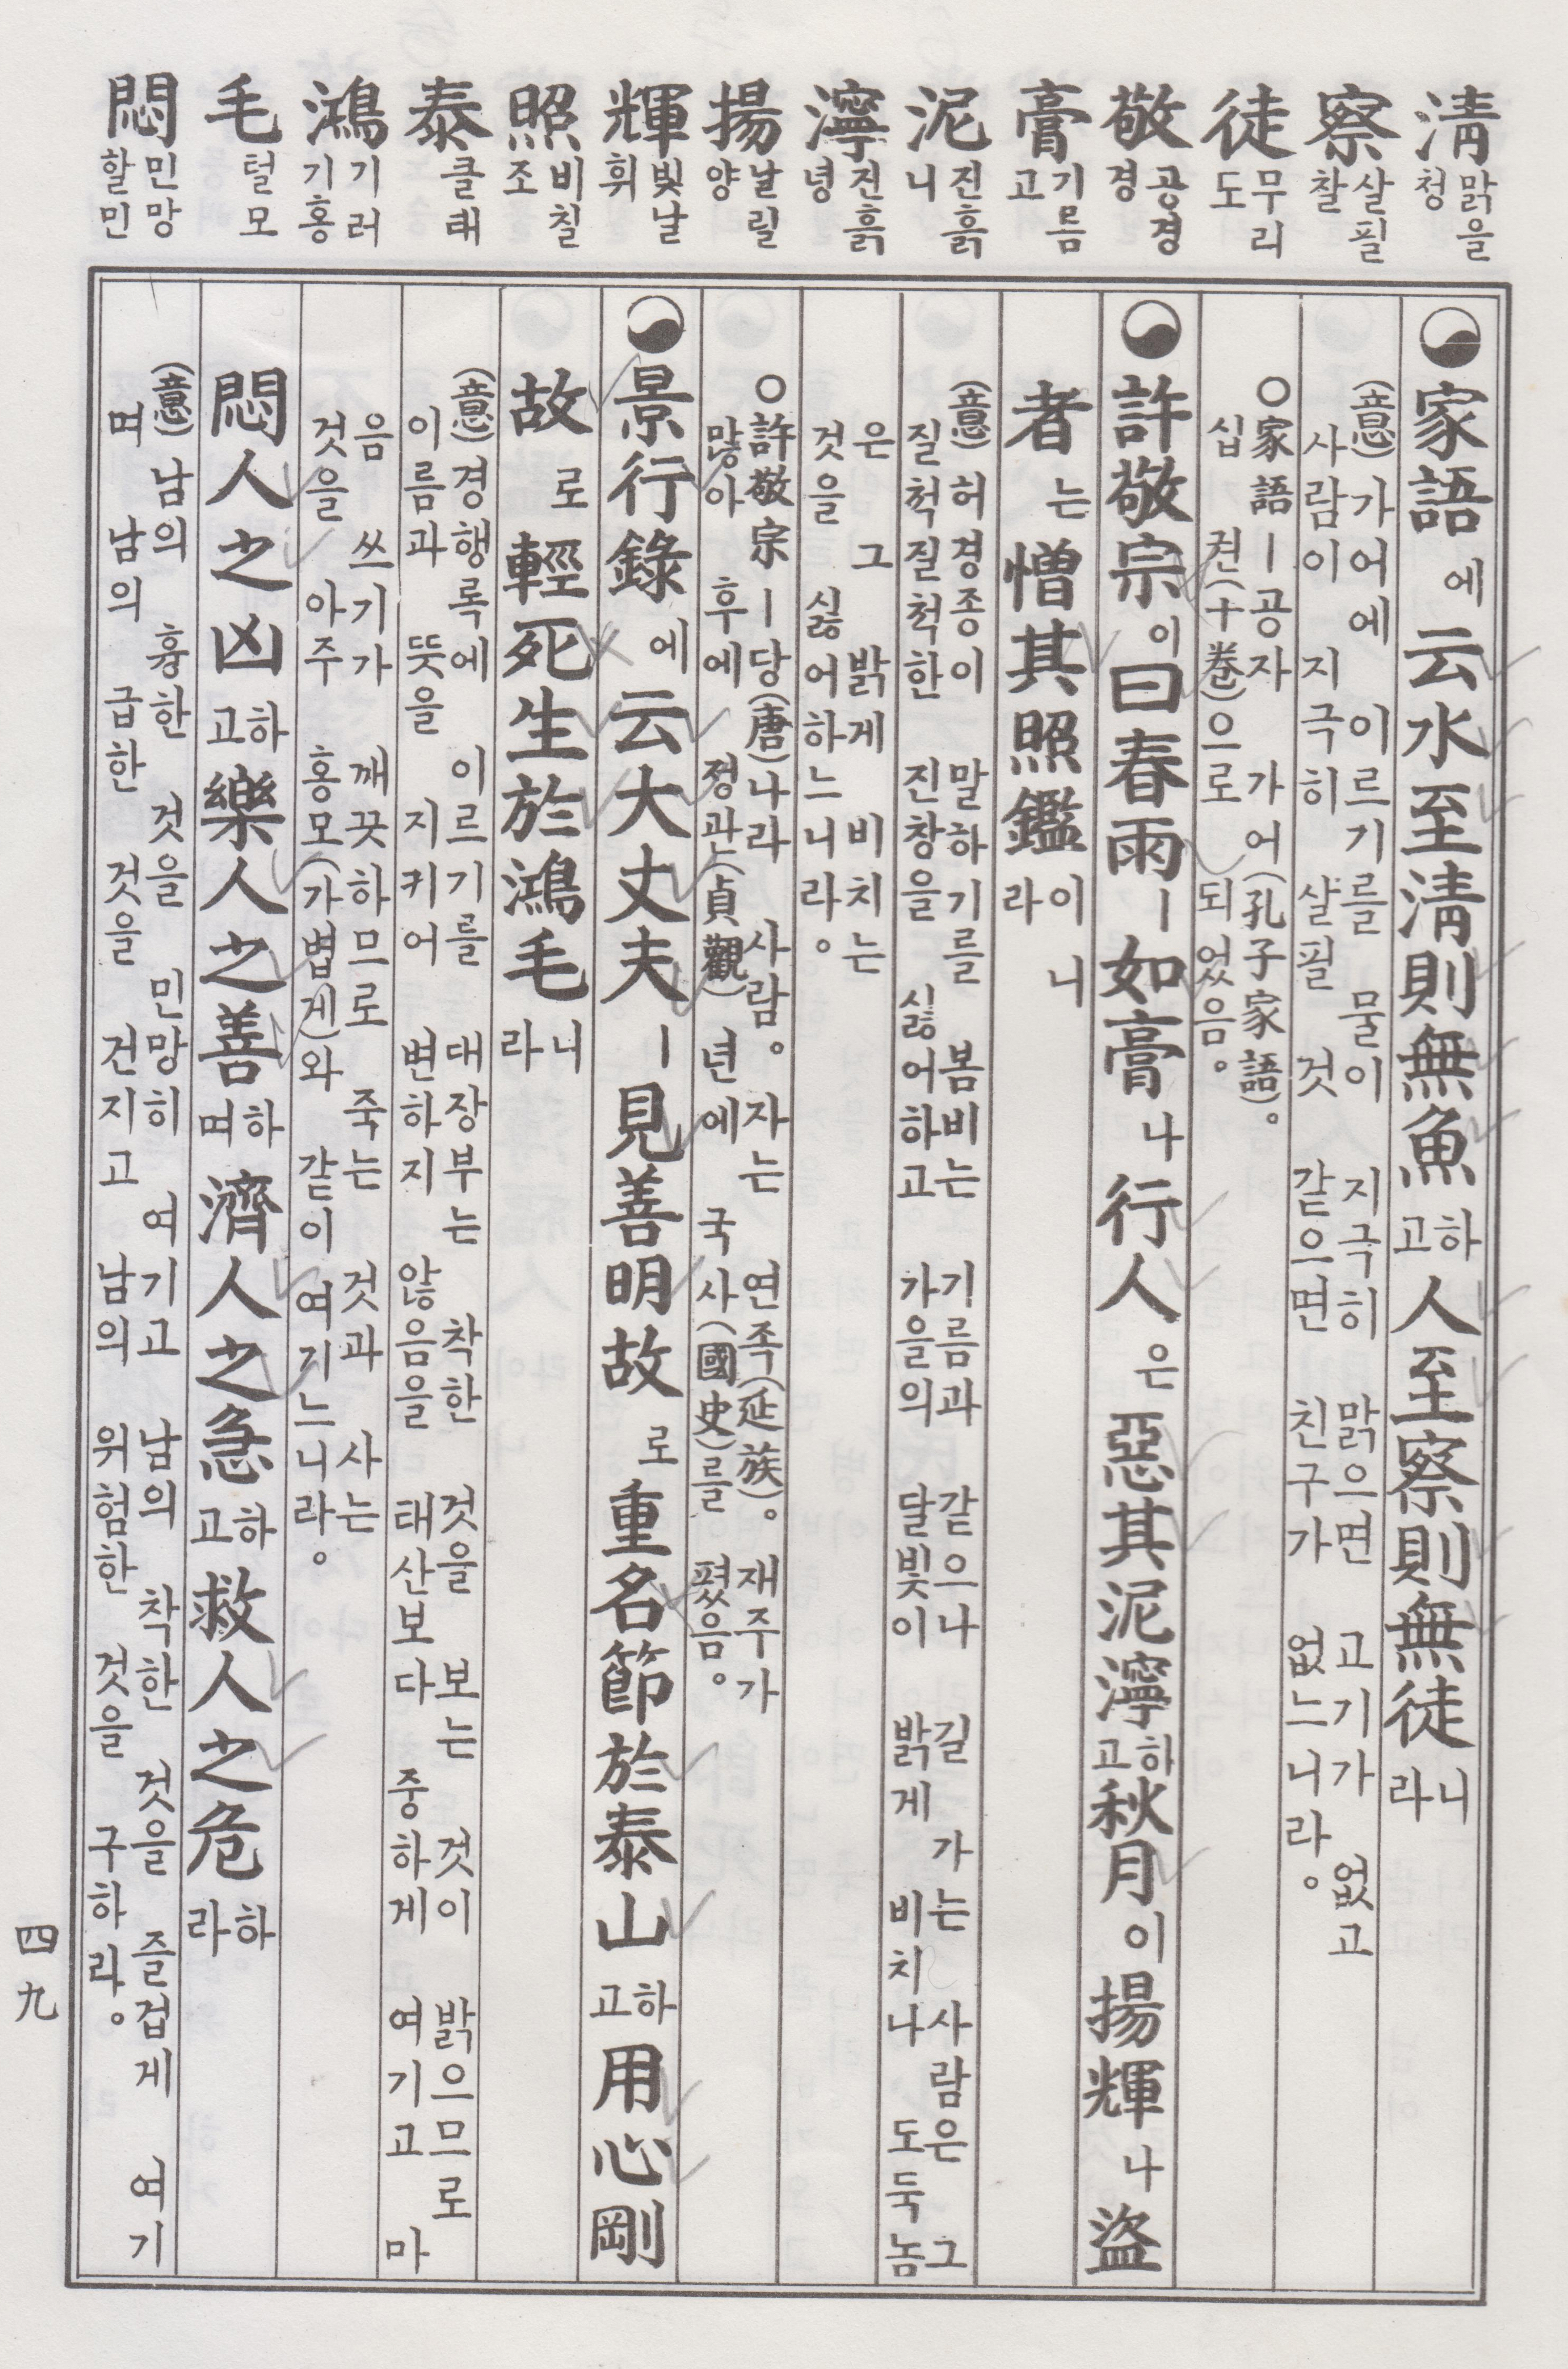 淸 맑을 청
察 살필 찰
徒 무리 도
敬 공경 경
膏 기름 고
泥 진흙 니
濘 진흙 녕
揚 날릴 양
輝 빛날 휘
照 비칠 조
泰 클 태
鴻 기러기 홍
毛 털 모
悶 민망할 민
家語에 云水至淸則無魚하고 人至察則無徒니라
(意) 가어에 이르기를 물이 지극히 맑으면 고기가 없고
사람이 지극히 살필 것 같으면 친구가 없느니라。
○家語ㅣ공자 가어(孔子家語)。
십 권(十卷)으로 되었음。
許敬宗이 曰春雨ㅣ如膏나 行人은 惡其泥濘하고 秋月이 揚輝나 盜
者는 憎其照鑑이니라
(意) 허경종이 말하기를 봄비는 기름과 같으나 길 가는 사람은 그
질척질척한 진창을 싫어하고 가을의 달빛이 밝게 비치나 도둑놈
은 그 밝게 비치는
것을 싫어하느니라。
○許敬宗ㅣ당(唐)나라 사람。 자는 연족(延族)。 재주가
많아 후에 정관(貞觀) 년에 국사(國史)를 폈음。
景行錄에 云大丈夫ㅣ見善明故로 重名節於泰山하고 用心剛
故로 輕死生於鴻毛니라
(意) 경행록에 이르기를 대장부는 착한 것을 보는 것이 밝으므로
이름과 뜻을 지키어 변하지 않음을 태산보다 중하게 여기고 마
음 쓰기가 깨끗하므로 죽는 것과 사는
것을 아주 홍모(가볍게)와 같이 여기느니라。
悶人之凶하고 樂人之善하며 濟人之急하고 救人之危하라
(意) 남의 흉한 것을 민망히 여기고 남의 착한 것을 즐겁게 여기
며 남의 급한 것을 건지고 남의 위험한 것을 구하라。
四九